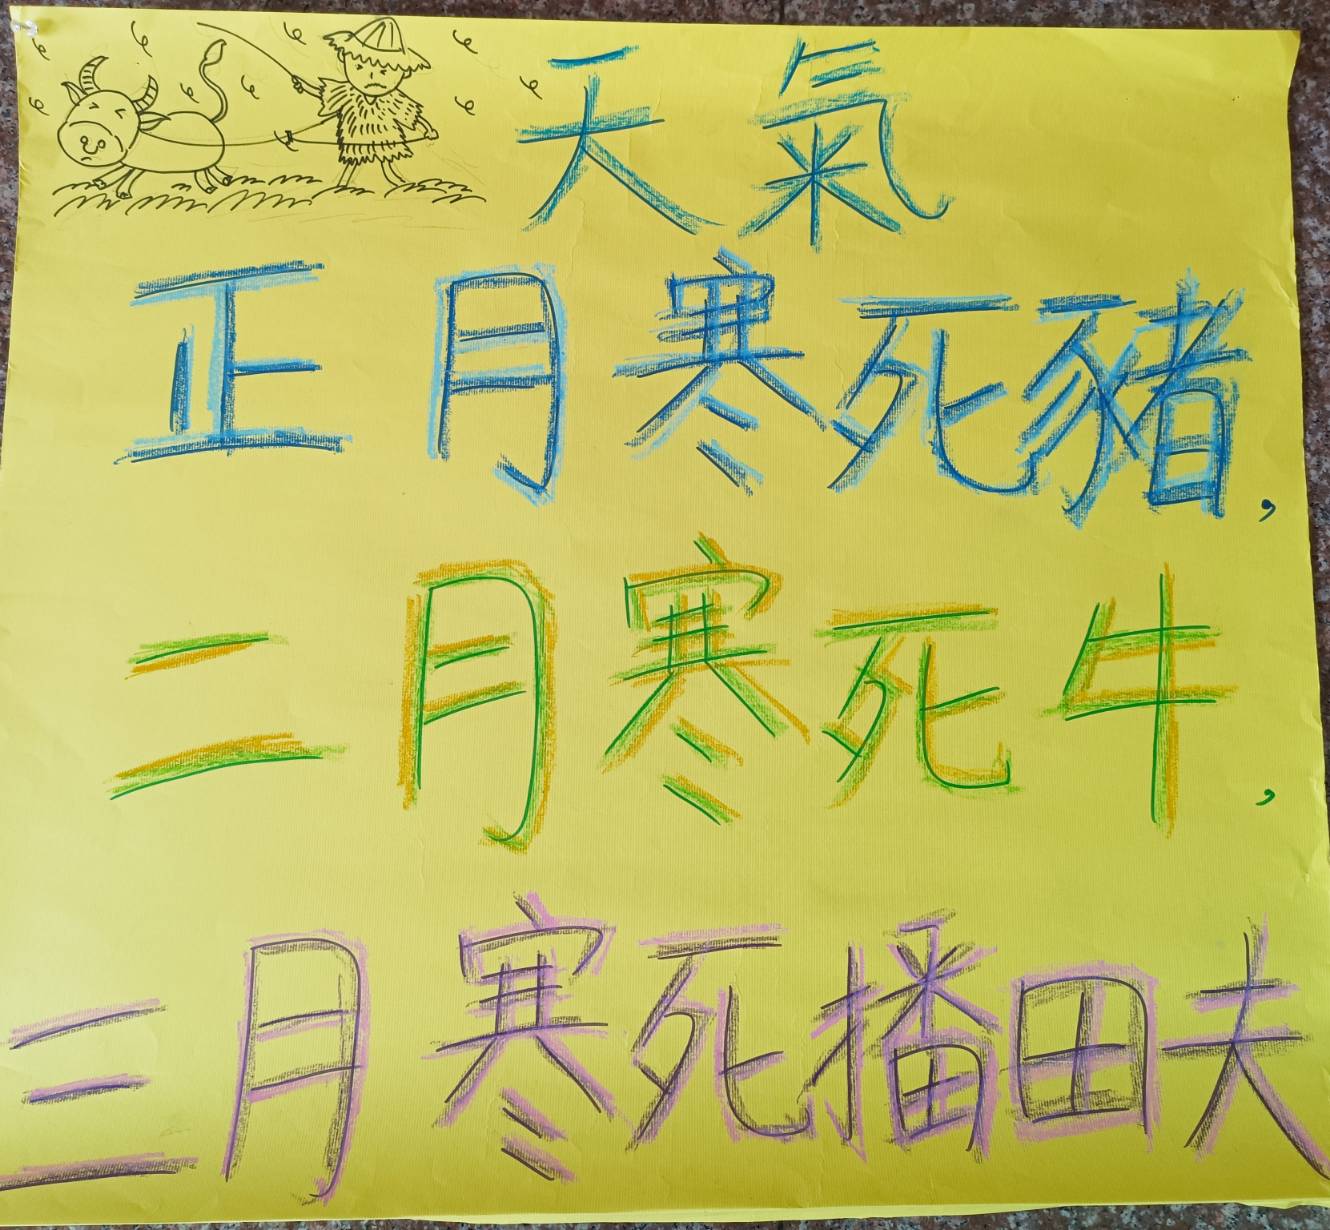 天氣
正月寒死豬,
二月寒死牛,
三月寒死播田夫